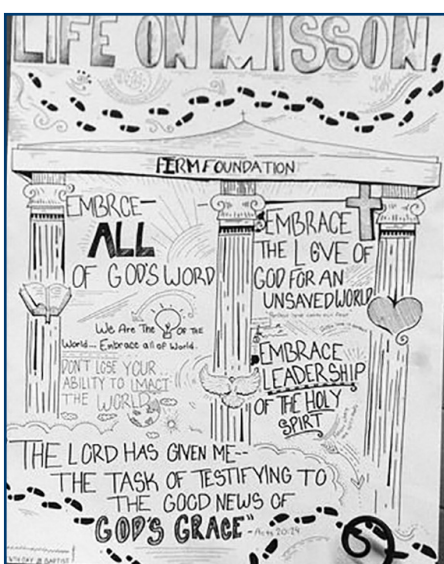 LIFE ON MISSON,
FIRM FOUNDATION
EMBRCE—
ALL
OF GOD'S WORD
We Are The OF THE
World... Embrace all of World.
DON'T LOSE YOUR
ABILITY TO IMACT
THE WORLD
EMBRACE
THE LOVE OF
GOD FOR AN
UNSAVED WORLD
EMBRACE
LEADERSHIP
OF THE HOLY
SPIRT
THE LORD HAS GIVEN ME--
THE TASK OF TESTIFYING TO
THE GOOD NEWS OF
GOD'S GRACE" -Acts 20:24
BAPTIST